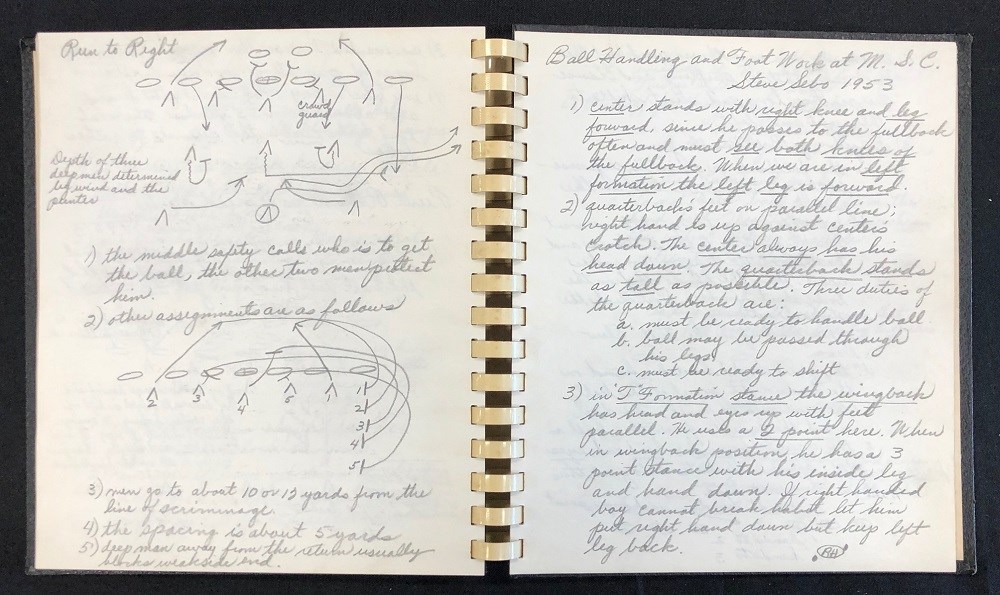 Run to Right
crowd
guard
Depth of three
deep men determined
by wind and the
punter
1) the middle safety calls who is to get
the ball, the other two men protect
him.
2) other assignments are as follows
2 3 4 5 1
2
3
4
5
3) men go to about 10 or 12 yards from the
line of scrimmage.
4) the spacing is about 5 yards
5) deep man away from the return usually
blocks weakside end.
Ball Handling and Foot Work at M. S. C.
Steve Sebo 1953
1) center stands with right knee and leg
forward, since he passes to the fullback
often and must see both knees of
the fullback. When we are in left
formation the left leg is forward.
2) quarterback's feet on parallel line;
right hand is up against centers
crotch. The center always has his
head down. The quarterback stands
as tall as possible. Three duties of
the quarterback are:
a. must be ready to handle ball
b. ball may be passed through
his legs
c. must be ready to shift
3) in "T" Formation stance the wingback
has head and eyes up with feet
parallel. He uses a 2 point here. When
in wingback position, he has a 3
point stance with his inside leg
and hand down. If right handed
boy cannot break habit let him
put right hand down but keep left
leg back.
RH